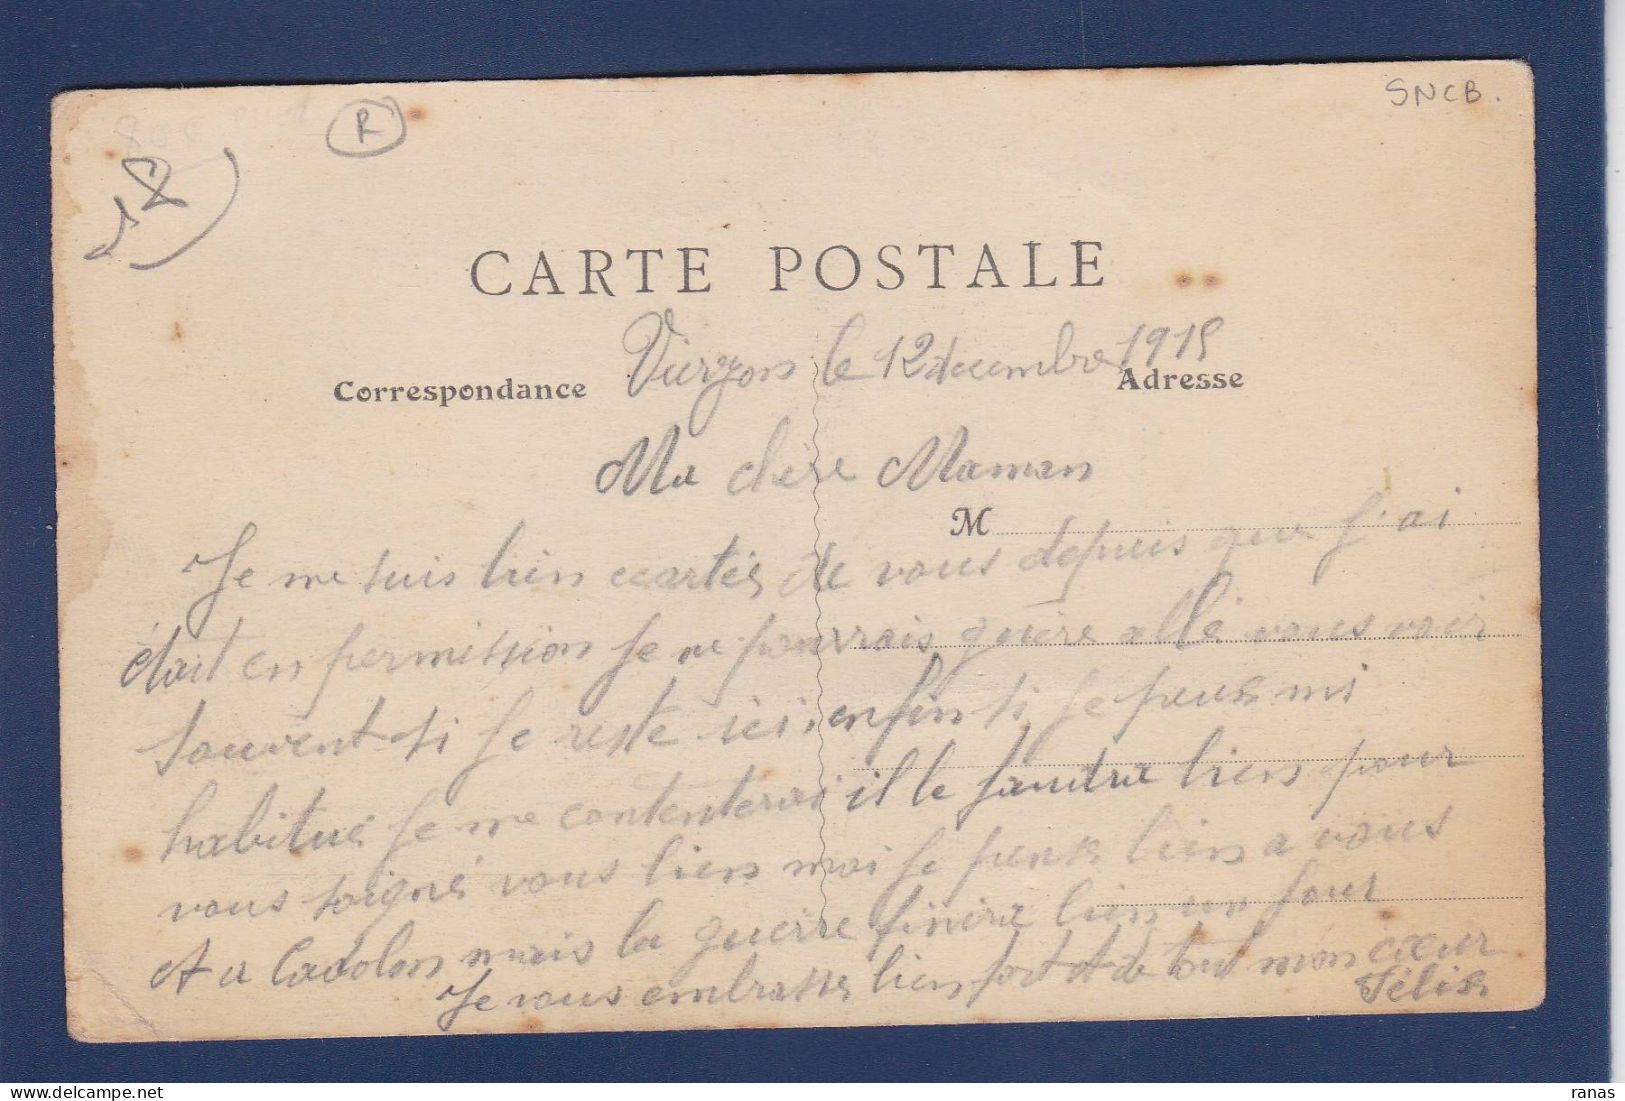 SNCB.
R
CARTE POSTALE
Vierzon le 12 decembre 1915
Correspondance
Adresse
Ma chère Maman
M
Je me suis bien ecartés de vous depuis que j'ai
était en permission je ne pourrais guère allé vous voir
souvent si je reste ici enfin si je peux mi
habitué je me contenterai il le faudra bien pour
vous soigné vous bien moi je pense bien a vous
et a mais la guerre finira bien un jour
Je vous embrasse bien fort et de tout mon cœur
Félix
ranas